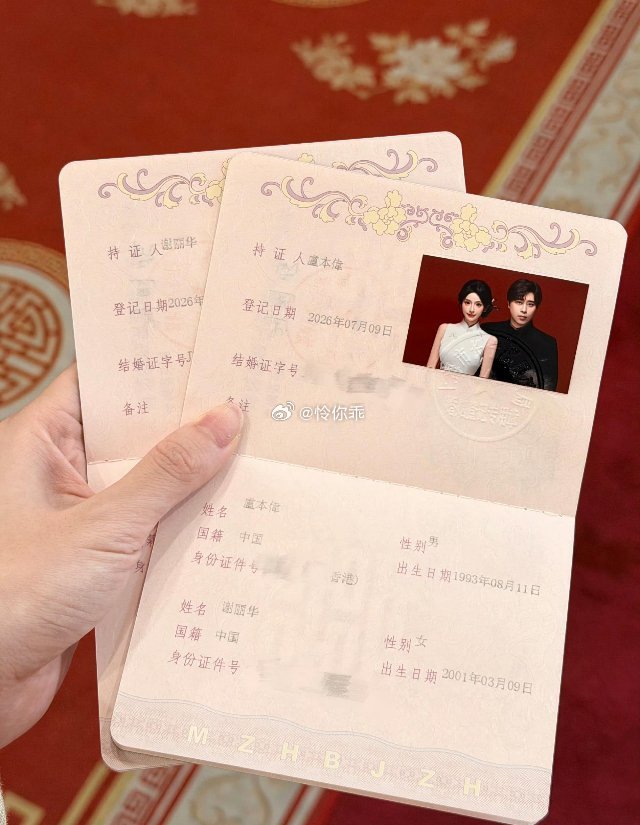 持证人 谢丽华
登记日期 2026年
结婚证字号 J
备注
持证人 盧本偉
登记日期 2026年07月09日
结婚证字号
备注
@怜你乖
姓名 盧本偉
国籍 中国 性别 男
身份证件号 香港) 出生日期 1993年08月11日
姓名 谢丽华
国籍 中国 性别 女
身份证件号 出生日期 2001年03月09日
MZHBJZH